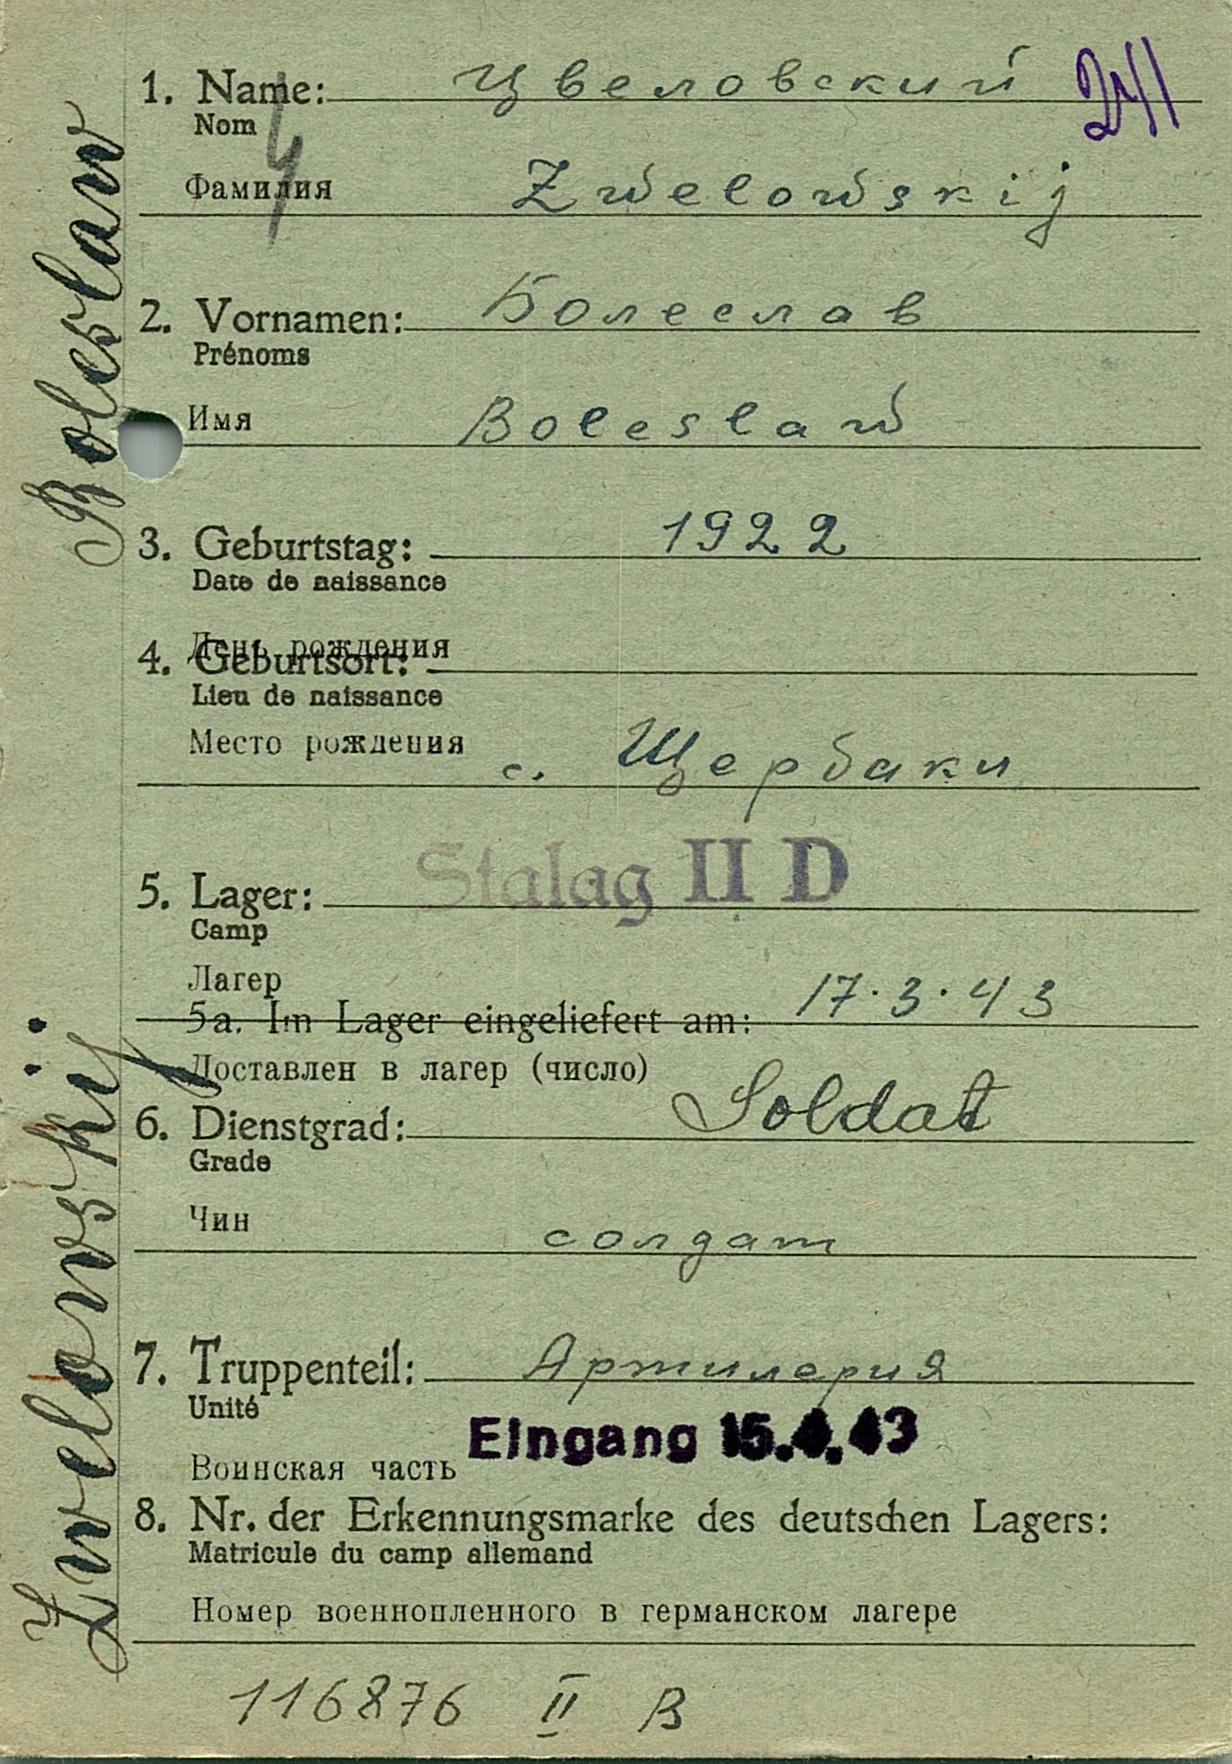 1. Name: Цвеловский 241
Nom
4
Фамилия Zwelowskij
2. Vornamen: Болеслав
Prénoms
Имя Boleslaw
3. Geburtstag: 1922
Date de naissance
День рождения
4. Geburtsort:
Lieu de naissance
Место рождения с. Щербаки
Stalag II D
5. Lager:
Camp
Лагер
5a. Im Lager eingeliefert am: 17.3.43
Доставлен в лагер (число)
6. Dienstgrad: Soldat
Grade
Чин солдат
7. Truppenteil: Артилерия
Unité
Eingang 15.4.43
Воинская часть
8. Nr. der Erkennungsmarke des deutschen Lagers:
Matricule du camp allemand
Номер военнопленного в германском лагере
116876 II B
Zwelowskij Boleslaw